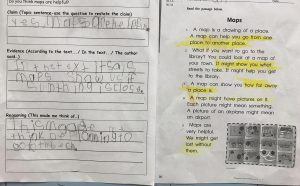 Do you think maps are helpful?
Claim (Topic sentence-use the question to restate the claim)
Yes maps are helpful
Evidence (According to the text.../ In the text... / The author said..)
In the text it says
maps show us if
something is close
Reasoning (This made me think of...)
This made me
think of going to
Read the passage below.
Maps
A map is a drawing of a place.
A map can help you go from one
place to another place.
What if you want to go to the
library? You could look at a map of
your town. It might show you what
streets to take. It might help you get
to the library.
A map can show you how far away
a place is.
A map might have pictures on it.
Each picture might mean something.
A picture of an airplane might mean
an airport.
Maps are
very helpful.
We might get
lost without
them.